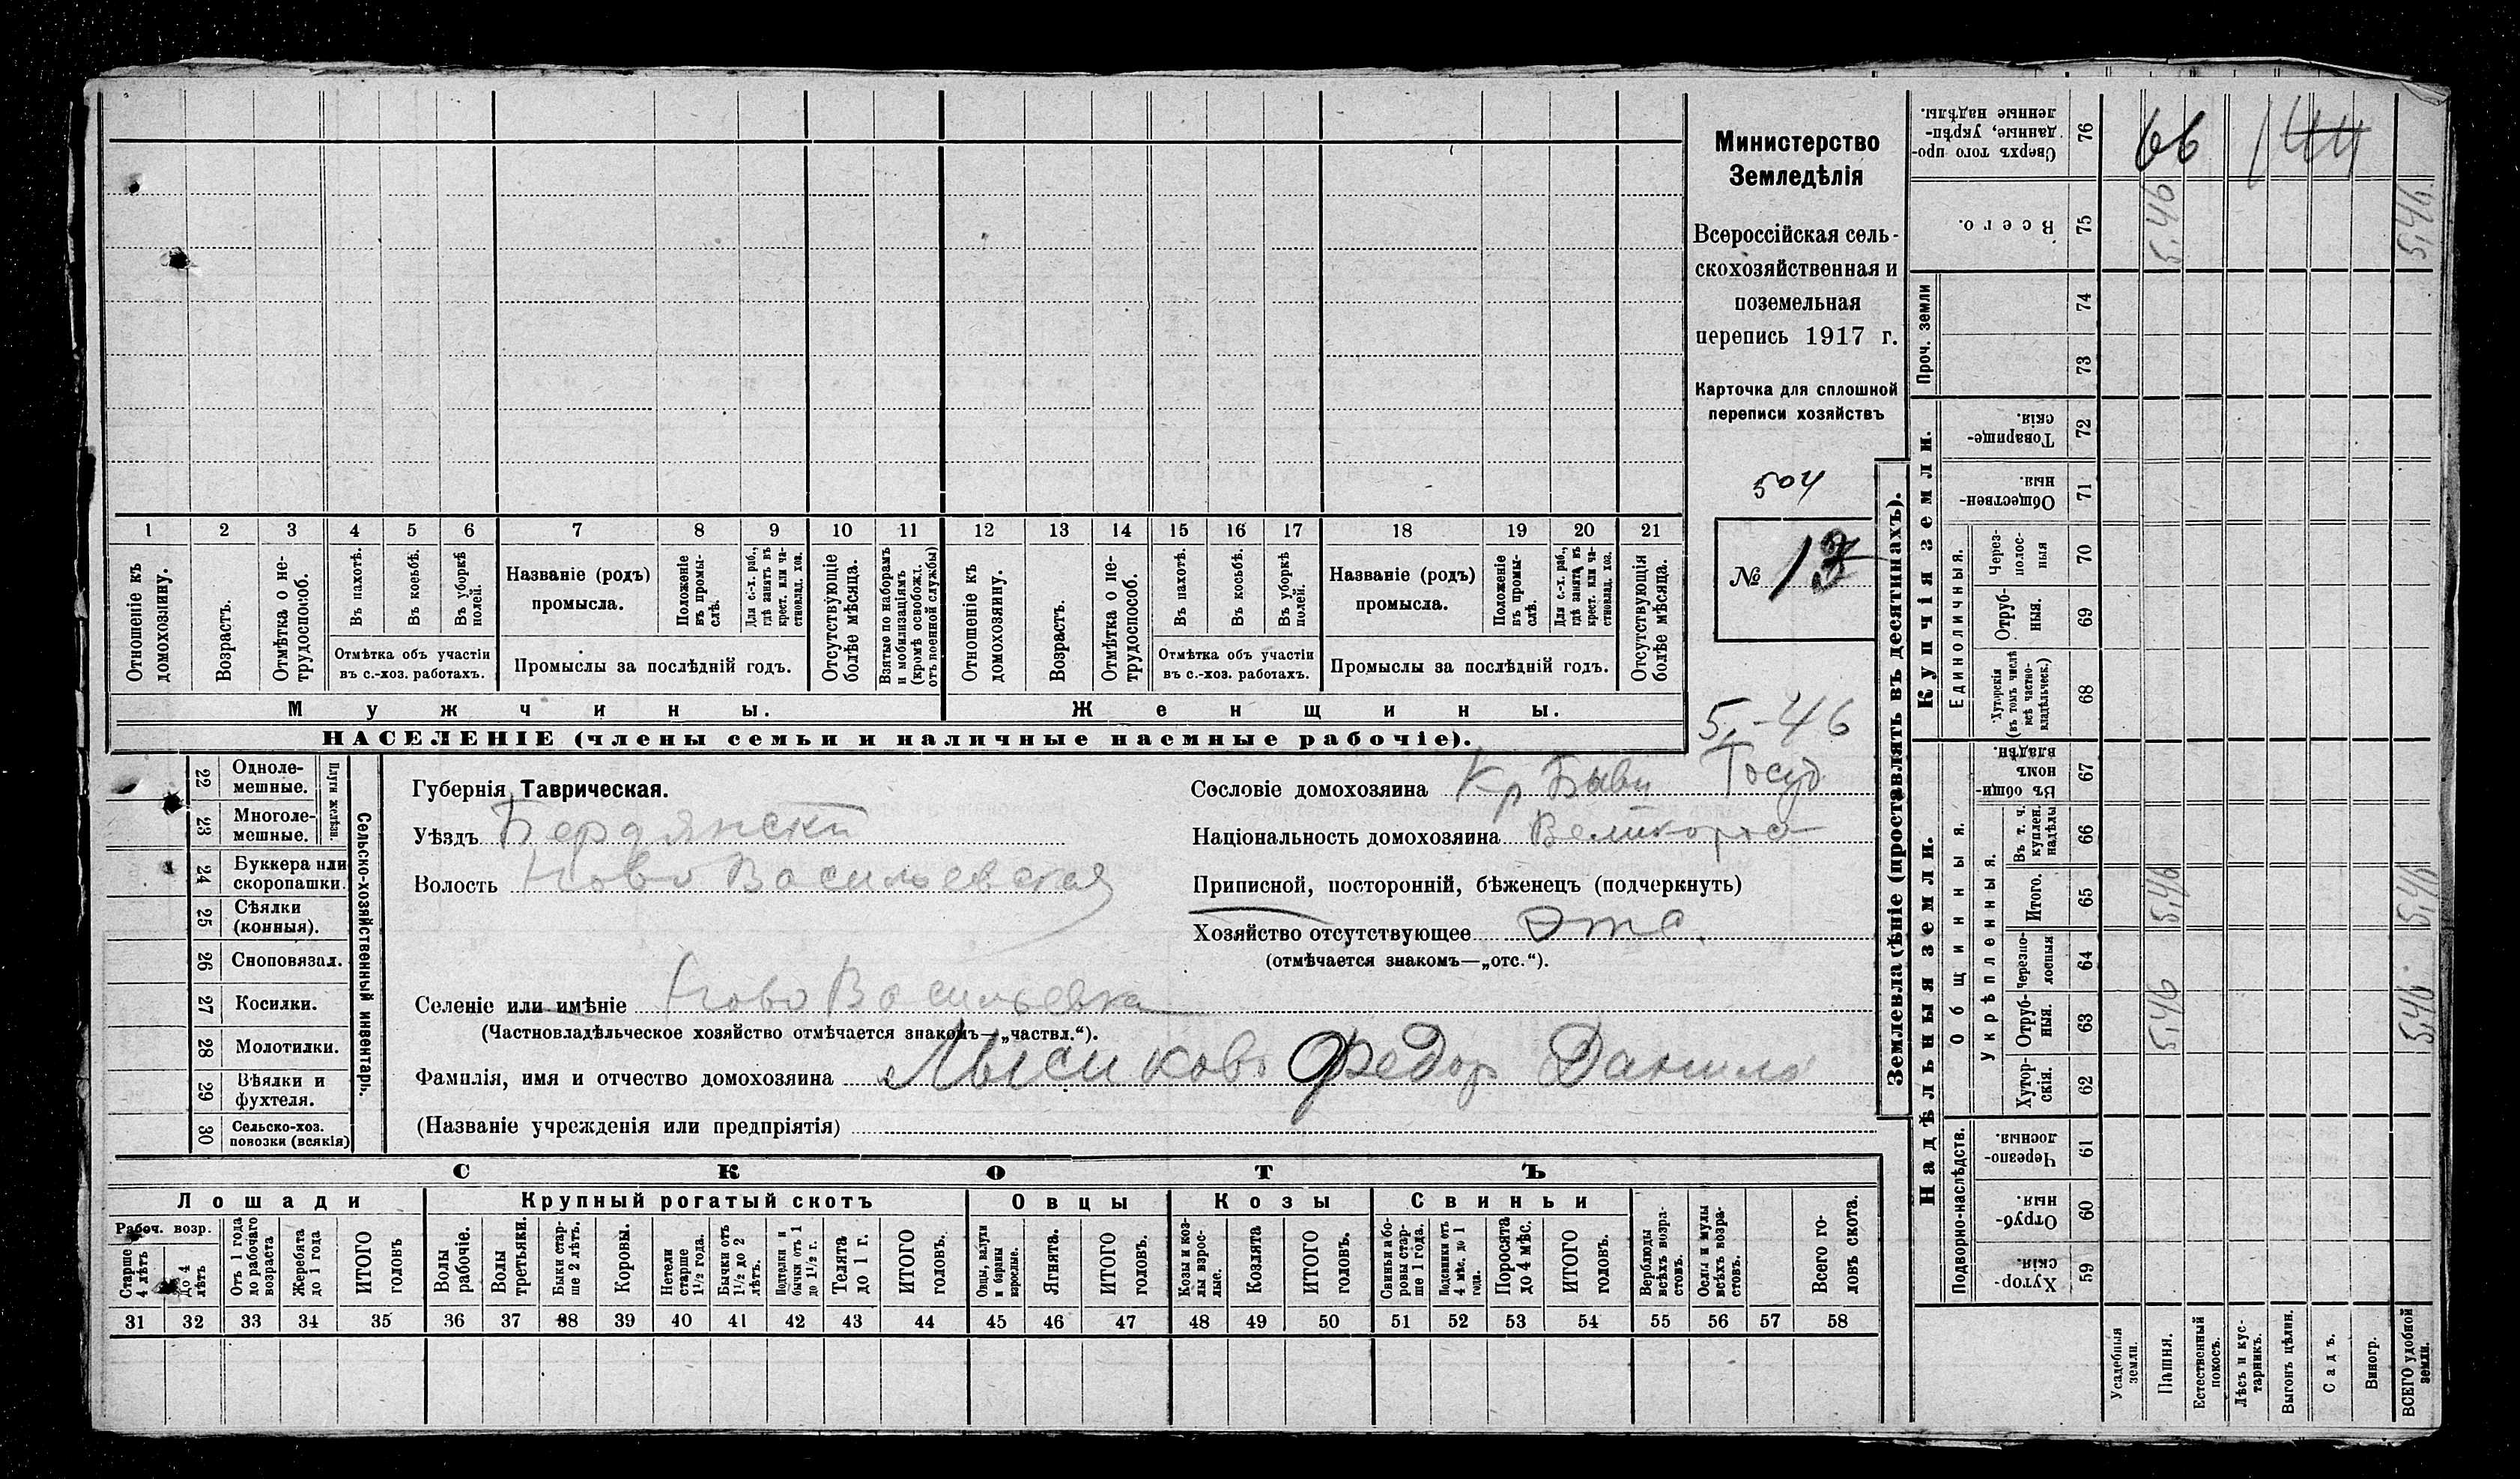 Министерство
Земледѣлія
Всероссійская сель-
скохозяйственная и
поземельная
перепись 1917 г.
Карточка для сплошной
переписи хозяйствъ
504
№ 13
5,-46
1 2 3 4 5 6 7 8 9 10 11 12 13 14 15 16 17 18 19 20 21
Отношеніе къ домохозяину.
Возрастъ.
Отмѣтка о не-трудоспособ.
Въ пахотѣ.
Въ косьбѣ.
Въ уборкѣ полей.
Отмѣтка объ участіи
въ с.-хоз. работахъ.
Названіе (родъ)
промысла.
Положеніе въ промы-слѣ.
Для с.-х. раб., гдѣ занятъ въ крест. или ча-стновлад. хоз.
Промыслы за послѣдній годъ.
Отсутствующіе болѣе мѣсяца.
Взятые по наборамъ и мобилизаціямъ (кромѣ освобожд. отъ военной службы)
Отношеніе къ домохозяину.
Возрастъ.
Отмѣтка о не-трудоспособ.
Въ пахотѣ.
Въ косьбѣ.
Въ уборкѣ полей.
Отмѣтка объ участіи
въ с.-хоз. работахъ.
Названіе (родъ)
промысла.
Положеніе въ промы-слѣ.
Для с.-х. раб., гдѣ занята въ крест. или ча-стновлад. хоз.
Промыслы за послѣдній годъ.
Отсутствующія болѣе мѣсяца.
Мужчины. Женщины.
НАСЕЛЕНІЕ (члены семьи и наличные наемные рабочіе).
Сельско-хозяйственный инвентарь.
Плуги желѣзн.
22 Одноле-мешные.
23 Многоле-мешные.
24 Буккера или скоропашки.
25 Сѣялки (конныя).
26 Сноповязал.
27 Косилки.
28 Молотилки.
29 Вѣялки и фухтеля.
30 Сельско-хоз. повозки (всякія)
Губернія Таврическая.
Уѣздъ Бердянскй
Волость Ново Васильевская
Селеніе или имѣніе Ново Васильевка
(Частновладѣльческое хозяйство отмѣчается знакомъ—„частвл.“).
Фамилія, имя и отчество домохозяина Лысиковъ Федор Данило
(Названіе учрежденія или предпріятія)
Сословіе домохозяина Кр Бывш Госуд
Національность домохозяина Великоросс
Приписной, посторонній, бѣженецъ (подчеркнуть)
Хозяйство отсутствующее Отс.
(отмѣчается знакомъ—„отс.“).
СКОТЪ
Лошади Крупный рогатый скотъ Овцы Козы Свиньи
Рабоч. возр.
Старше 4 лѣтъ
До 4 лѣтъ
Отъ 1 года до рабочаго возраста
Жеребята до 1 года
ИТОГО головъ
Волы рабочіе.
Волы третьяки.
Быки стар-ше 2 лѣтъ.
Коровы.
Нетели старше 1½ года.
Бычки отъ 1½ до 2 лѣтъ.
Подтелки и бычки отъ 1 до 1½ г.
Телята до 1 г.
ИТОГО головъ.
Овцы, валухи и бараны взрослые.
Ягнята.
ИТОГО головъ.
Козы и коз-лы взрос-лые.
Козлята
ИТОГО головъ.
Свиньи и бо-ровы стар-ше 1 года.
Подсвинки отъ 4 мѣс. до 1 года.
Поросята до 4 мѣс.
ИТОГО головъ.
Верблюды всѣхъ возра-стовъ.
Ослы и мулы всѣхъ возра-стовъ.
Всего го-ловъ скота.
31 32 33 34 35 36 37 38 39 40 41 42 43 44 45 46 47 48 49 50 51 52 53 54 55 56 57 58
Землевладѣніе (проставлять въ десятинахъ).
Сверхъ того про-данные, укрѣп-ленные надѣлы. 76 66 144
Всего. 75 5,46 5,46
Проч. земли
74
73
Купчія земли.
Товарище-скія. 72
Обществен-ныя. 71
Единоличныя.
Через-полос-ныя 70
Отруб-ныя. 69
Хуторскія (въ томъ числѣ всѣ частно-владѣльческ.) 68
Надѣльныя земли.
Общинныя.
Въ общин-номъ владѣн. 67
Укрѣпленныя.
Въ т. ч. куплен. надѣлы 66
Итого. 65 5,46 5,46
Черезпо-лосныя 64
Отруб-ныя. 63 5,46 5,46
Хутор-скія. 62
Подворно-наслѣдств.
Черезпо-лосныя. 61
Отруб-ныя. 60
Хутор-скія. 59
Усадебныя земли.
Пашня.
Естественный покосъ.
Лѣсъ и кус-тарникъ.
Выгонъ цѣлин.
Садъ.
Виногр.
ВСЕГО удобной земли.